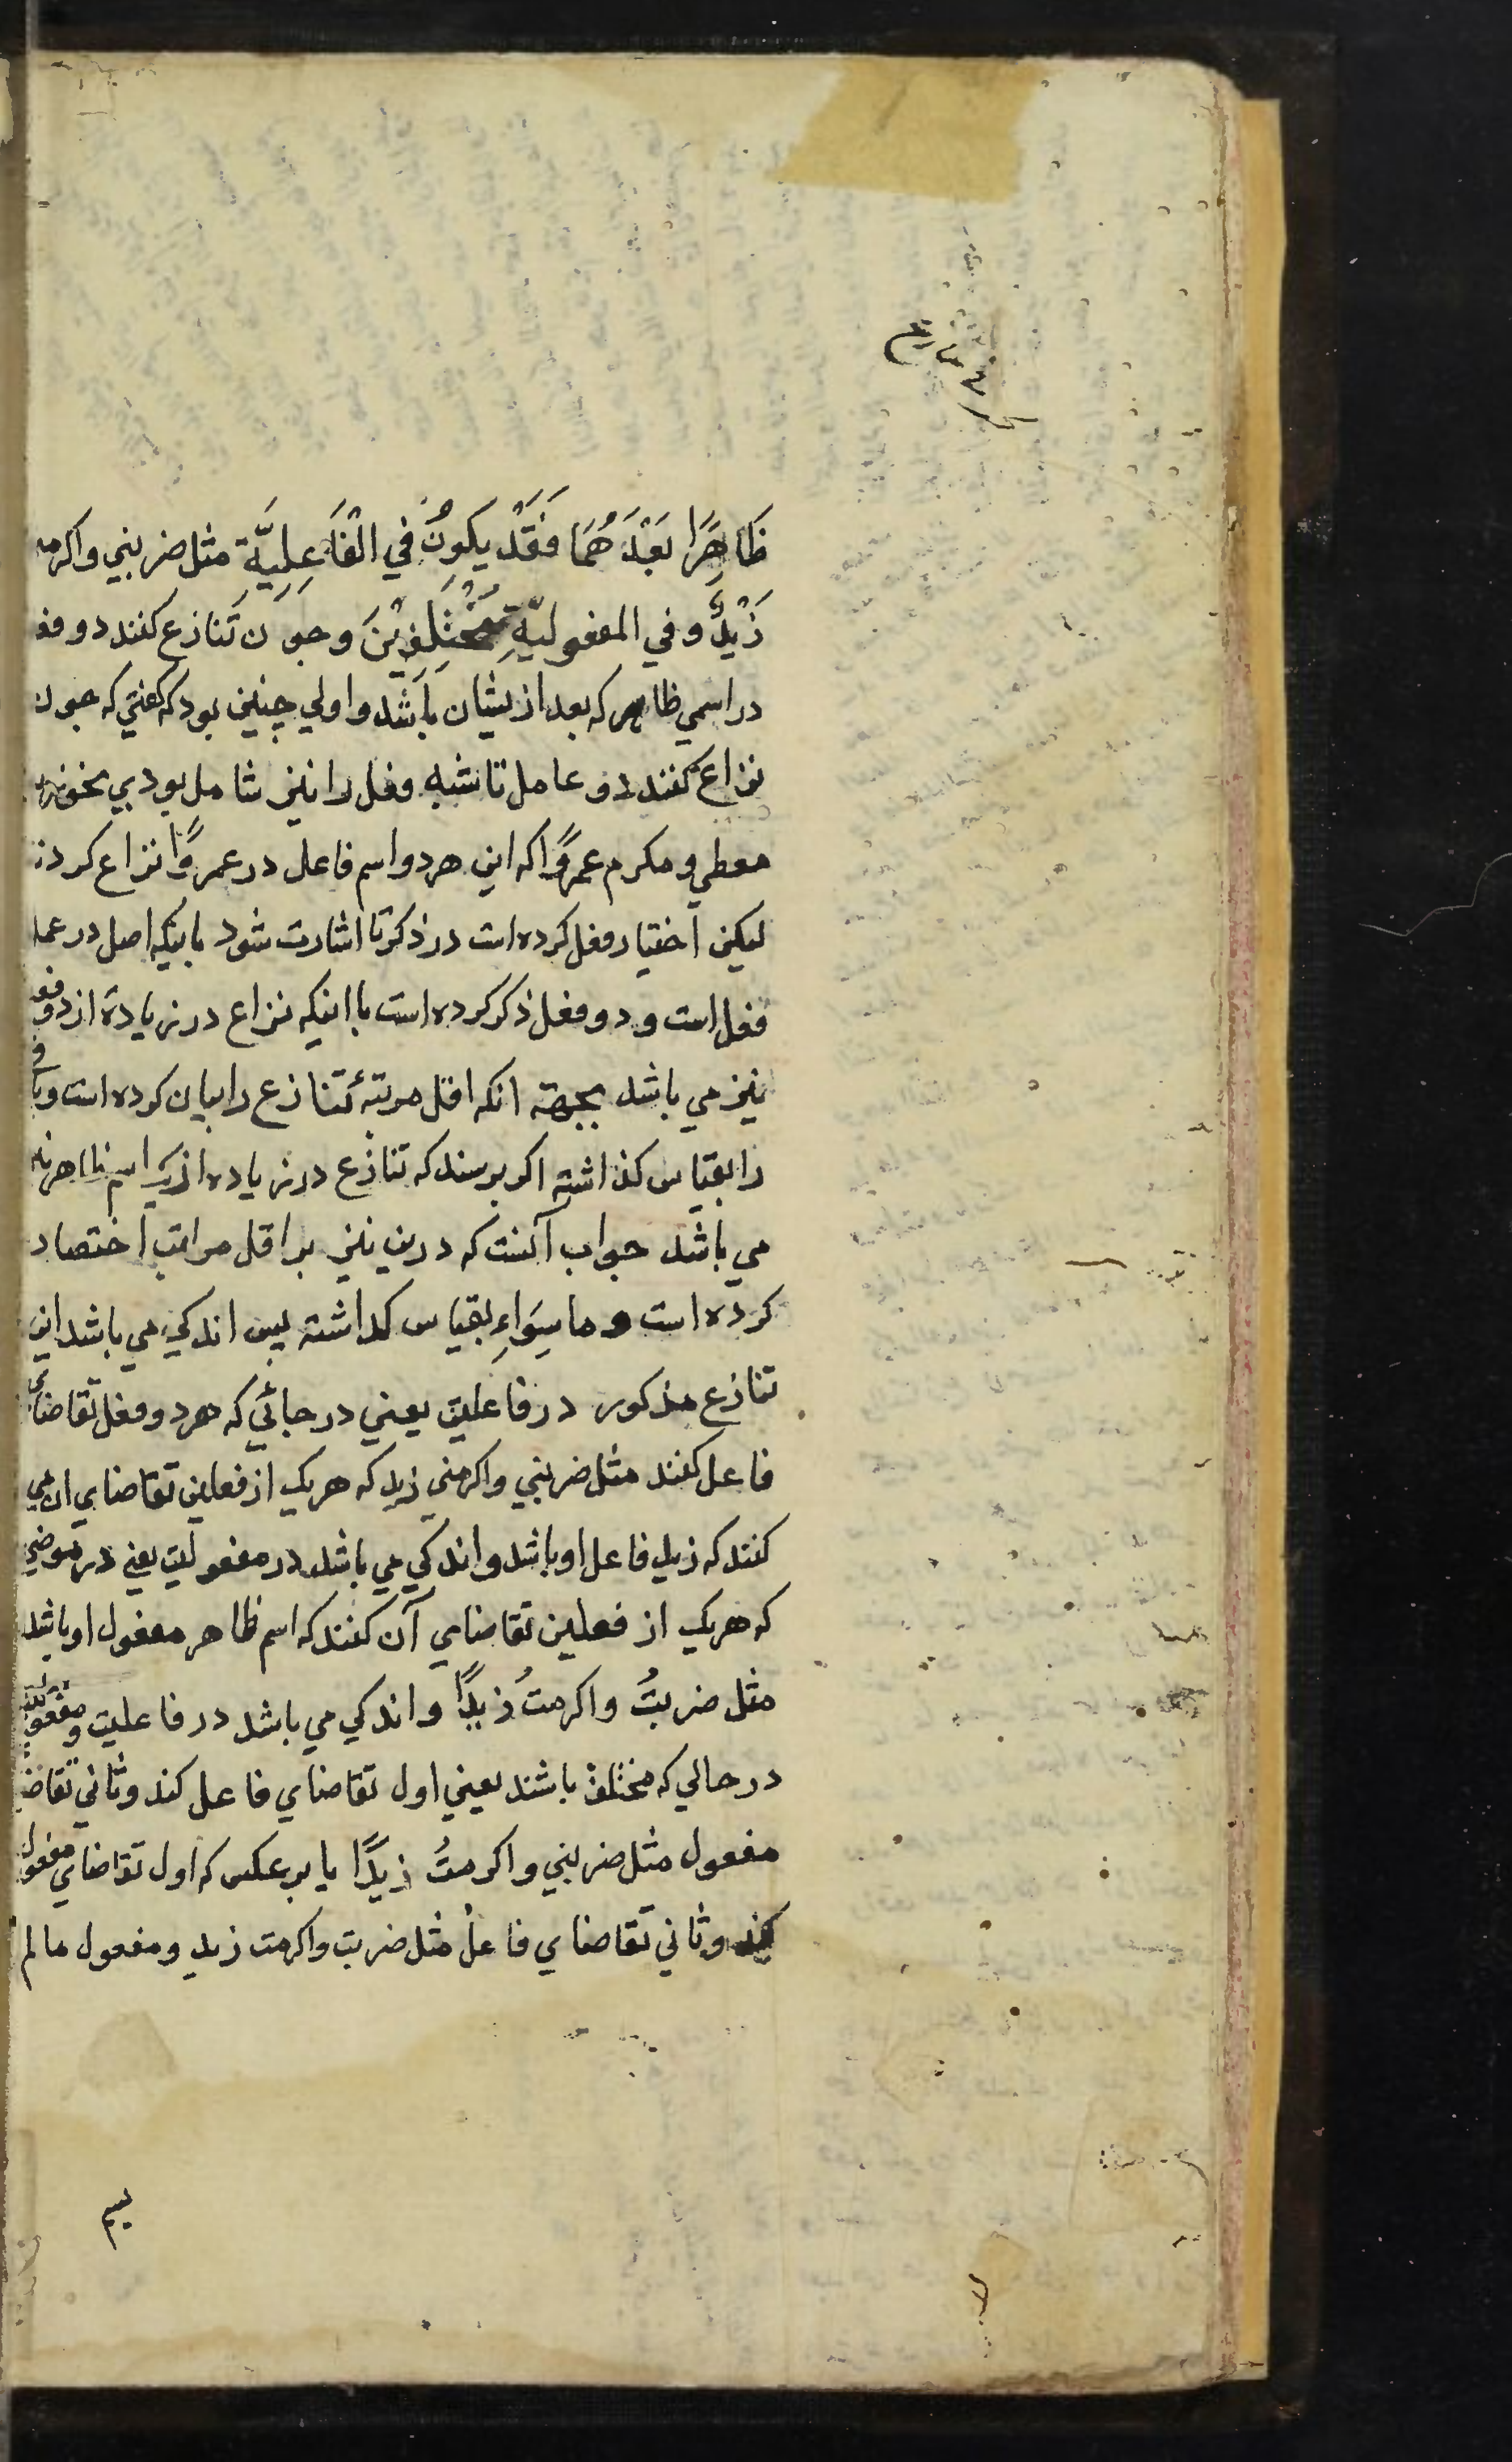 ظَاهِرًا بَعْدَهُمَا فَقَدْ يَكُونُ فِي الْفَاعِلِيَّةِ مثل ضربني واكرمني
زَيْدٌ وفي المفعوليةِ مُخْتَلِفَيْنَ وجون تنازع كنند دو فعل
در اسمي ظاهر كه بعد ازيشان باشد واولي چنين بود كه كفتي كه جون
نزاع كنند دو عامل تا شبه وفعل را نيز شامل بودي بخو زيد
معطي ومكرم عمروًا كه اين هردو اسم فاعل در عمروًا نزاع كردند
ليكن اختيار فعل كرده است در ذكر تا اشارت شود بانيكه اصل در عمل
فعل است ودو فعل ذكر كرده است با اينكه نزاع در زيادة از دو فعل
نيز مي باشد بجهة انكه اقل مرتبهٔ تنازع را بيان كرده است وباقي
را بقياس كذاشته اكر برسند كه تنازع در زياده از يك اسم ظاهر نيز
مي باشد جواب آنست كه درين نيز بر اقل مراتب اختصار
كرده است وما سِوَاءِ بقياس كداشته پس اندكي مي باشد اين
تنازع مذكور در فاعليت يعني در جائي كه هردو فعل تقاضاي
فاعل كنند مثل ضربني واكرمني زيد كه هريك از فعلين تقاضاي ان مي
كنند كه زيد فاعل او باشد واندكي مي باشد در مفعوليت يعني در موضعي
كه هريك از فعلين تقاضاي آن كنند كه اسم ظاهر مفعول او باشد
مثل ضربتُ واكرمتُ زيدًا واندكي مي باشد در فاعليت ومفعوليت
در حالي كه مختلف باشند يعني اول تقاضاي فاعل كند وثاني تقاضاي
مفعول مثل ضربني واكرمتُ زيدًا يا برعكس كه اول تقاضاي مفعول
كند وثاني تقاضاي فاعل مثل ضربت واكرمت زيد ومفعول مالم
يسم